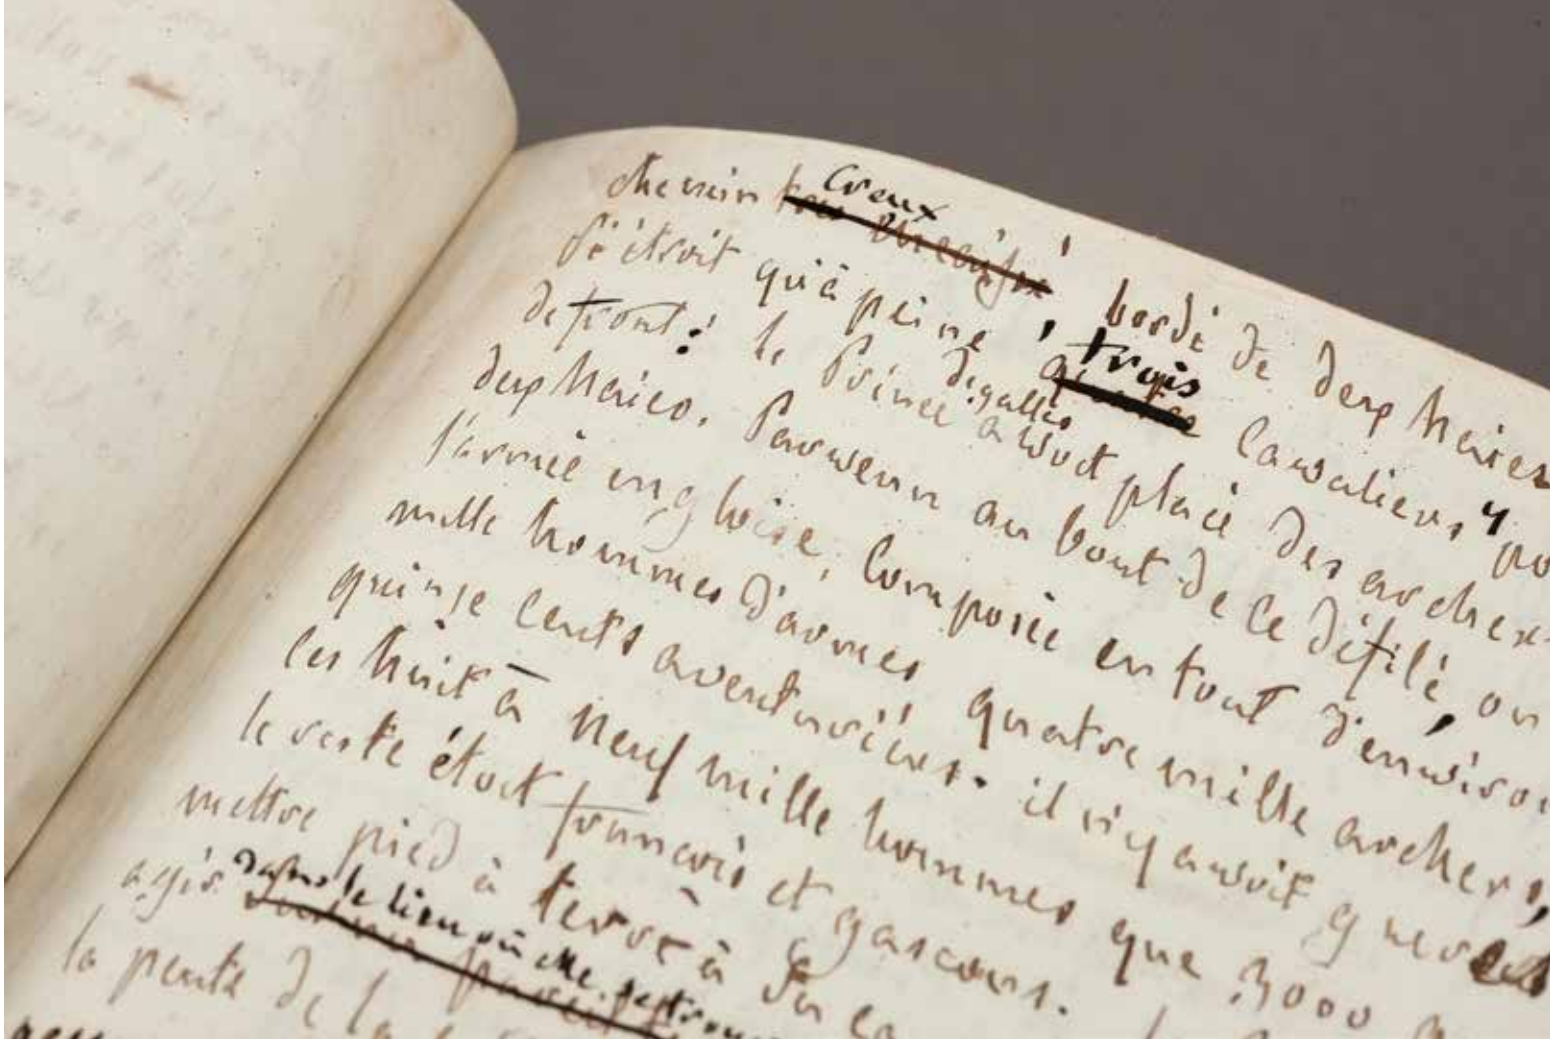 chemin creux, bordé de deux haies
si étroit qu'à peine, trois cavaliers y po
de front: le Prince de galles avoit placé des archers
deux haies. Parvenu au bout de ce défilé, on
l'armée angloise, composée en tout d'environ
mille hommes d'armes quatre mille archers,
quinze cents aventuriers. il n'y avoit gueres
les huit à neuf mille hommes que 3000
le reste étoit françois et gascons.
mettre pied à terre à
agir dans le lieu où elle se trouv
la pente de la